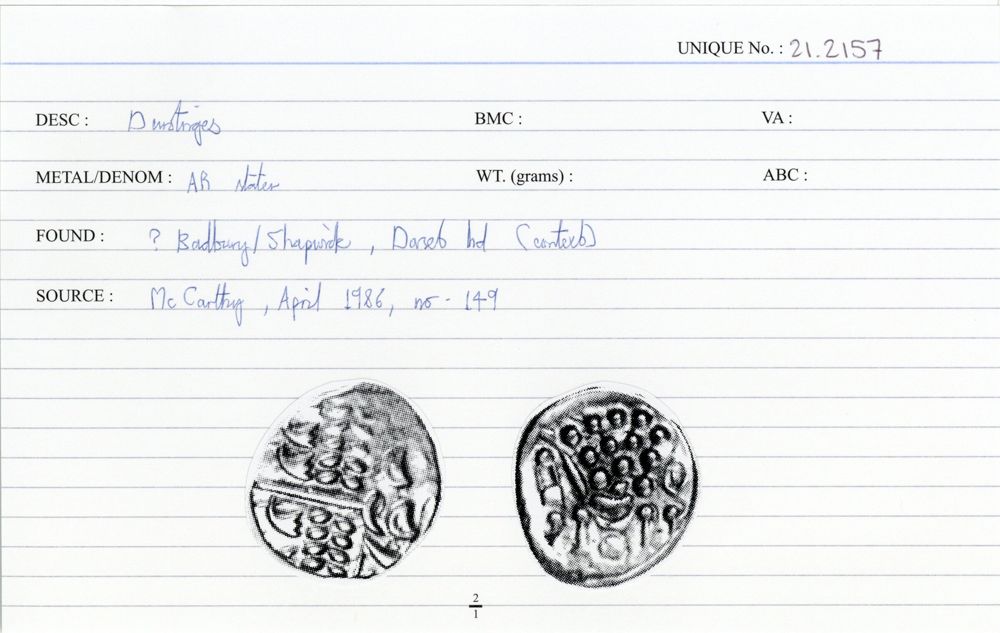 UNIQUE No. : 21.2157
DESC : Durotriges BMC : VA :
METAL/DENOM : AR stater WT. (grams) : ABC :
FOUND : ? Badbury/Shapwick, Dorset hd (contexts)
SOURCE : McCarthy, April 1986, no. 149
2
1